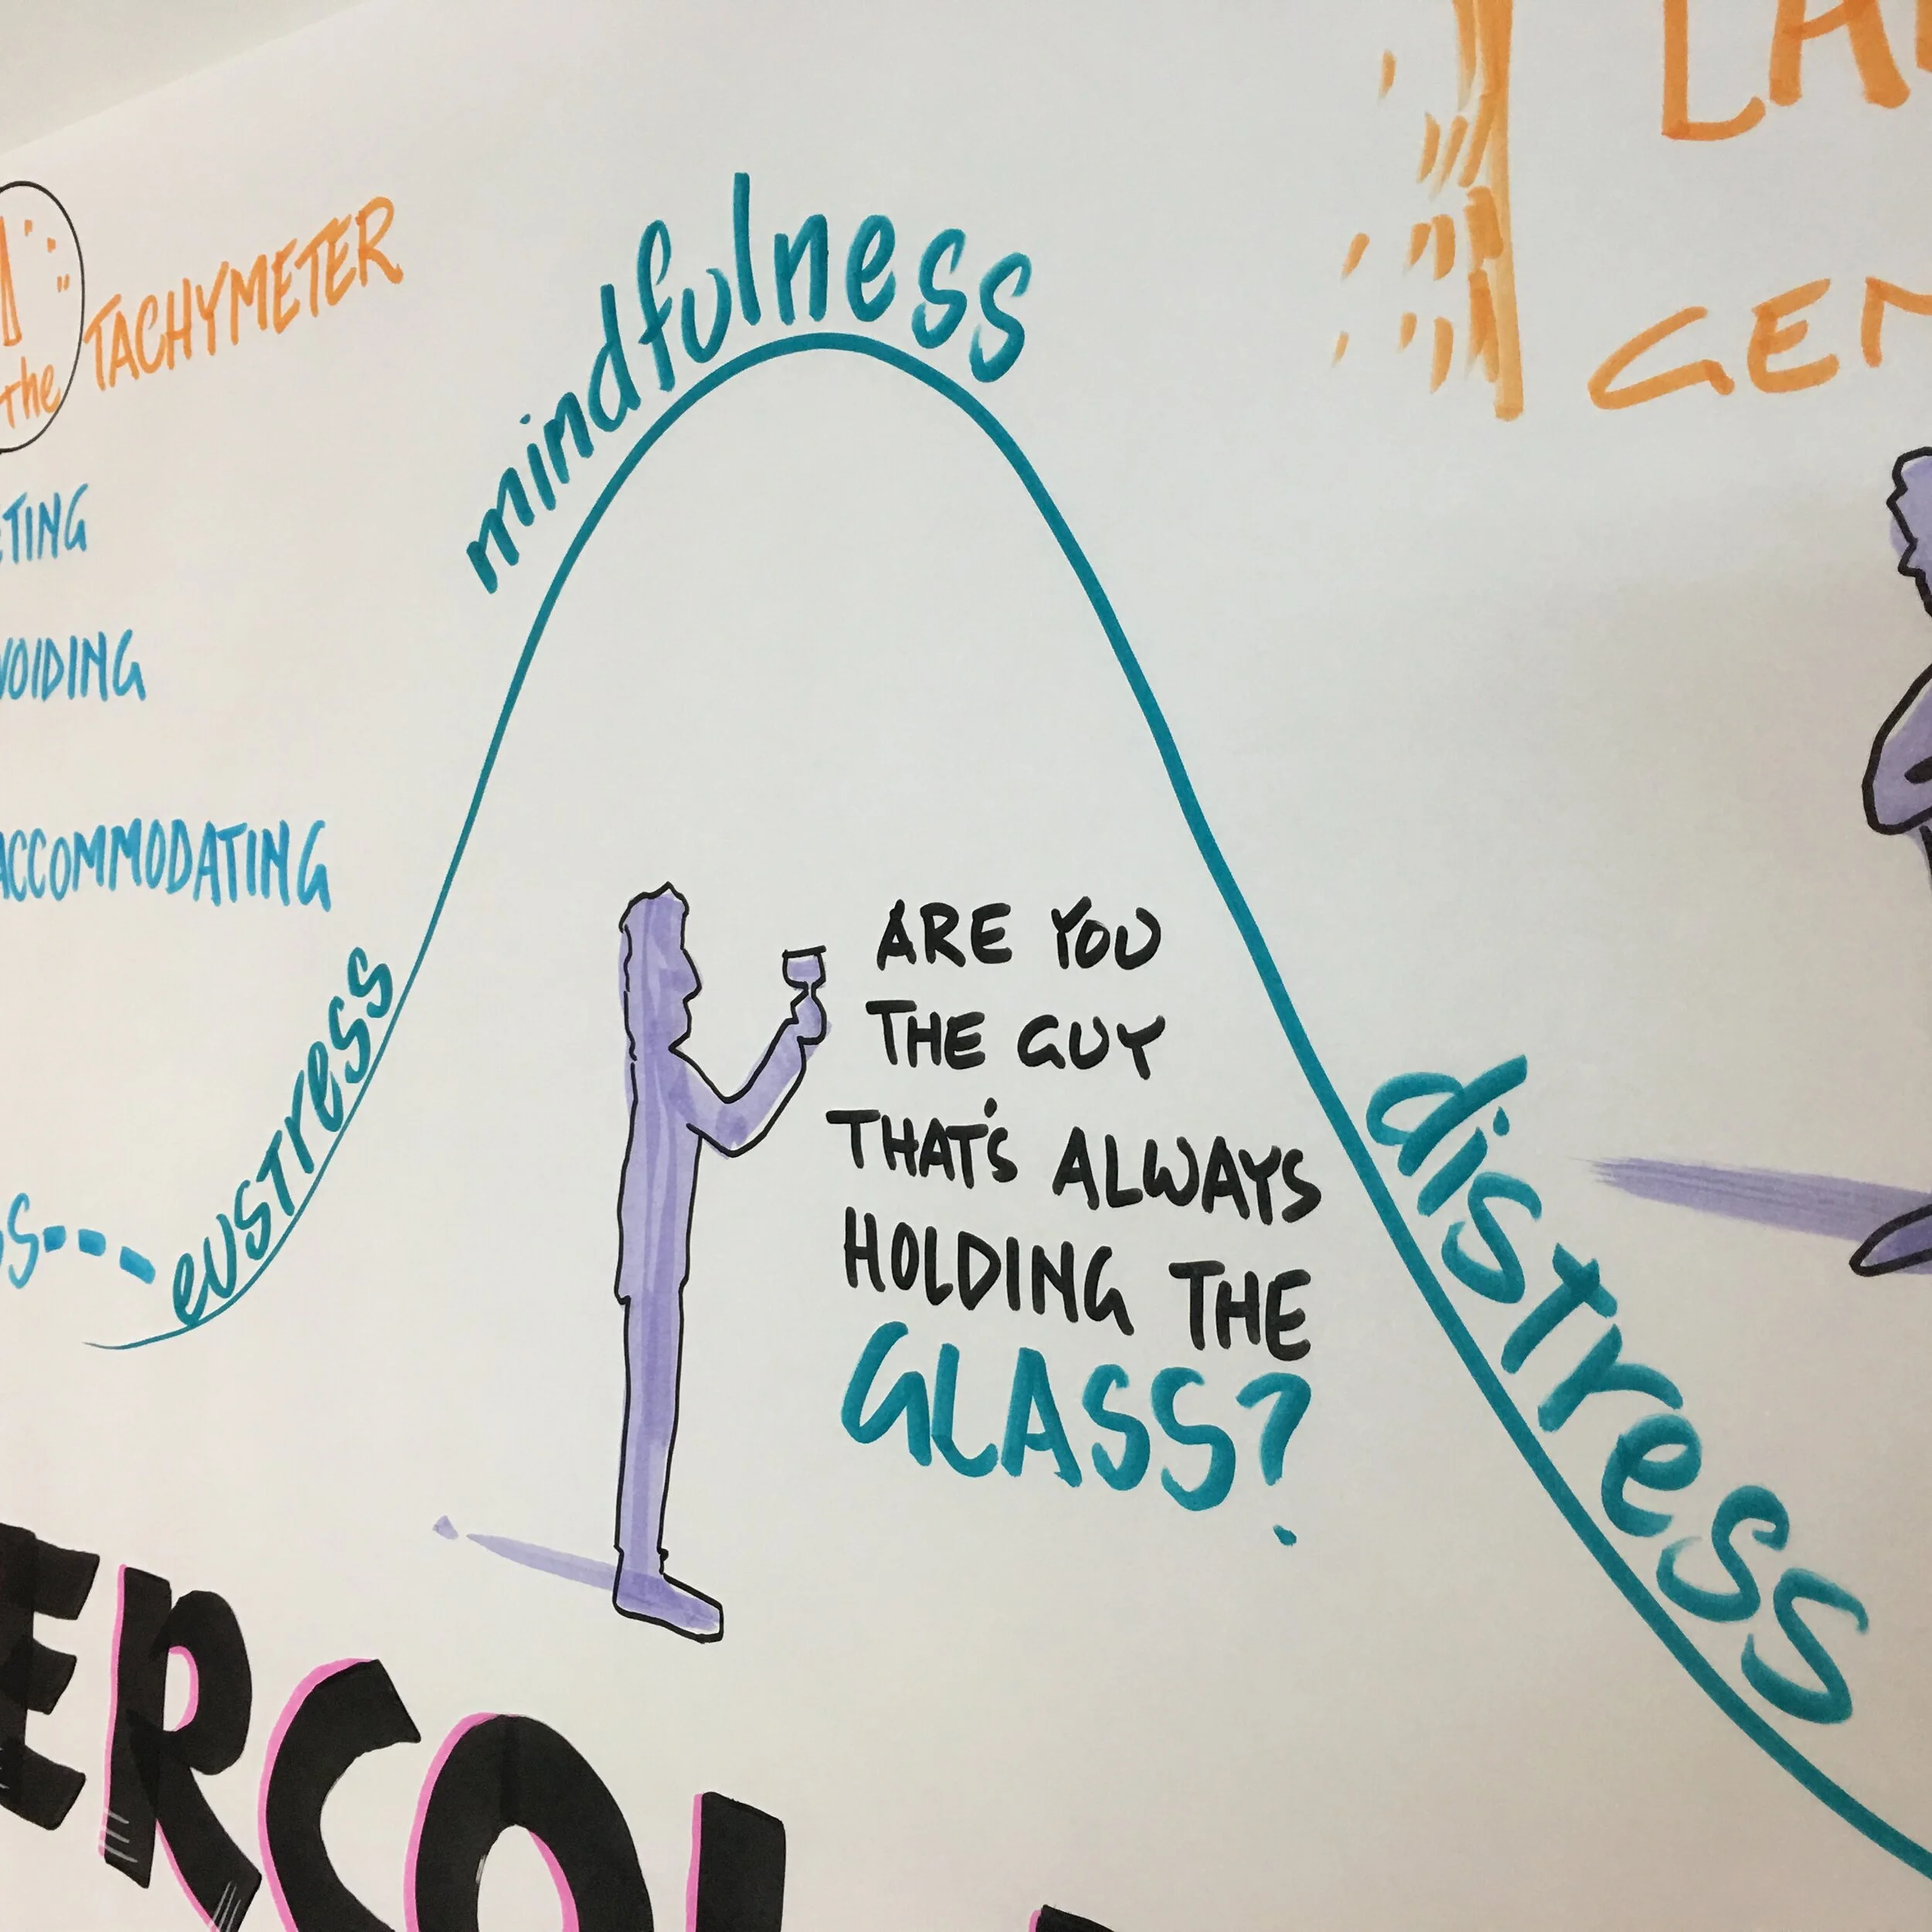 the
TACHYMETER
VOIDING
ACCOMMODATING
eustress
mindfulness
distress
ARE YOU
THE GUY
THAT'S ALWAYS
HOLDING THE
GLASS?